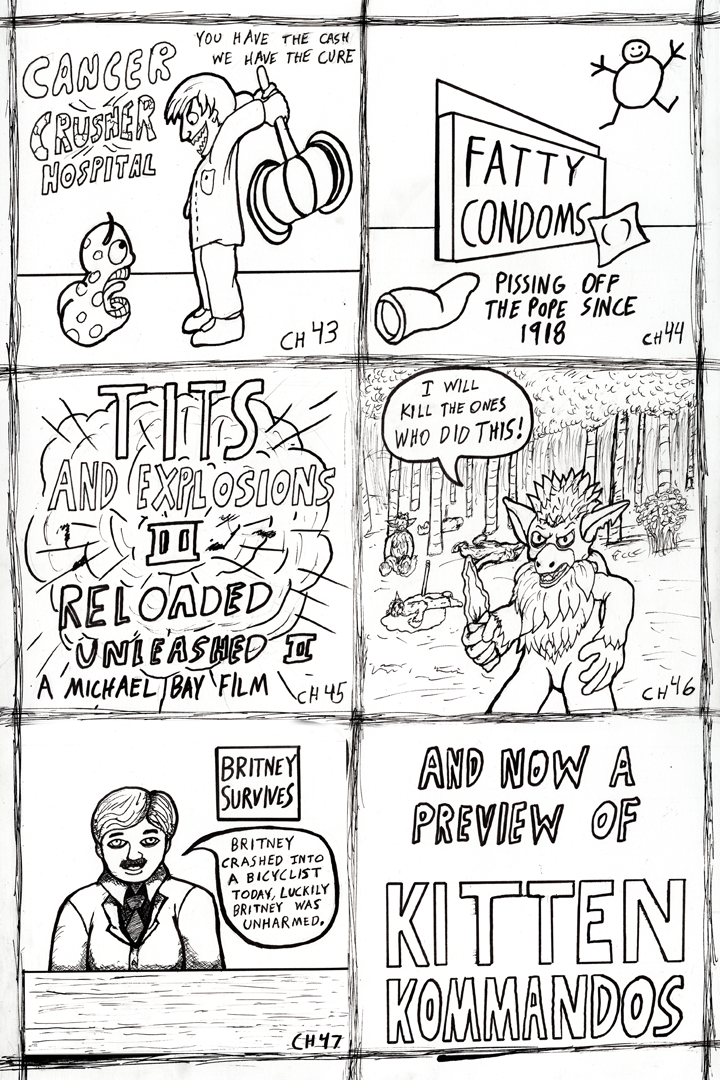 YOU HAVE THE CASH
WE HAVE THE CURE
CANCER
CRUSHER
HOSPITAL
CH 43
FATTY
CONDOMS
PISSING OFF
THE POPE SINCE
1918
CH 44
TITS
AND EXPLOSIONS
III
RELOADED
UNLEASHED II
A MICHAEL BAY FILM
CH 45
I WILL
KILL THE ONES
WHO DID THIS!
CH 46
BRITNEY
SURVIVES
BRITNEY
CRASHED INTO
A BICYCLIST
TODAY, LUCKILY
BRITNEY WAS
UNHARMED.
CH 47
AND NOW A
PREVIEW OF
KITTEN
KOMMANDOS